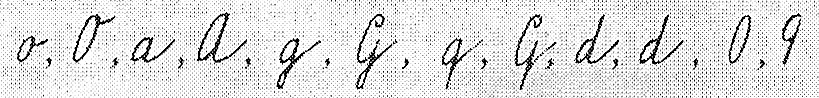 o, O, a, A, g, G, q, G, d, d, 0, 9